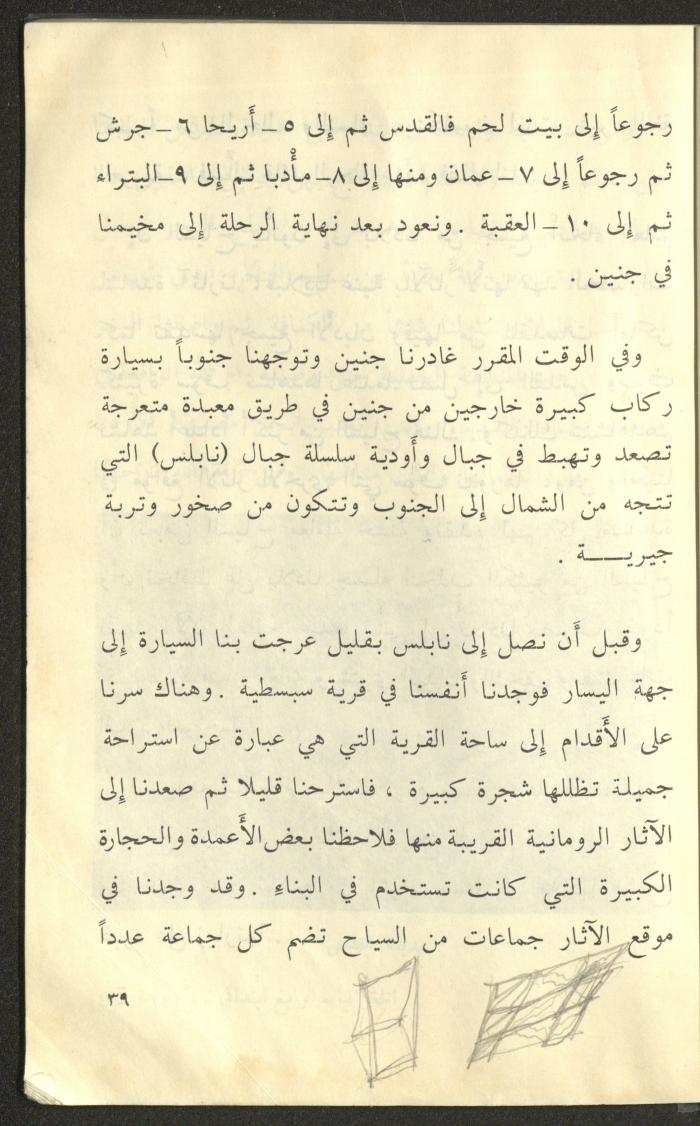 رجوعاً إِلى بيت لحم فالقدس ثم إِلى ٥ ــ أَريحا ٦ ــ جرش
ثم رجوعاً إِلى ٧ ــ عمان ومنها إِلى ٨ــ مأْدبا ثم إِلى ٩ــ البتراء
ثم إِلى ١٠ ــ العقبة . ونعود بعد نهاية الرحلة إِلى مخيمنا
في جنين .
وفي الوقت المقرر غادرنا جنين وتوجهنا جنوباً بسيارة
ركاب كبيرة خارجين من جنين في طريق معبدة متعرجة
تصعد وتهبط في جبال وأَودية سلسلة جبال (نابلس) التي
تتجه من الشمال إِلى الجنوب وتتكون من صخور وتربة
جيريـــــة .
وقبل أَن نصل إِلى نابلس بقليل عرجت بنا السيارة إِلى
جهة اليسار فوجدنا أَنفسنا في قرية سبسطية . وهناك سرنا
على الأَقدام إِلى ساحة القرية التي هي عبارة عن استراحة
جميلة تظللها شجرة كبيرة ، فاسترحنا قليلا ثم صعدنا إِلى
الآثار الرومانية القريبة منها فلاحظنا بعض الأَعمدة والحجارة
الكبيرة التي كانت تستخدم في البناءِ . وقد وجدنا في
موقع الآثار جماعات من السياح تضم كل جماعة عدداً
٣٩